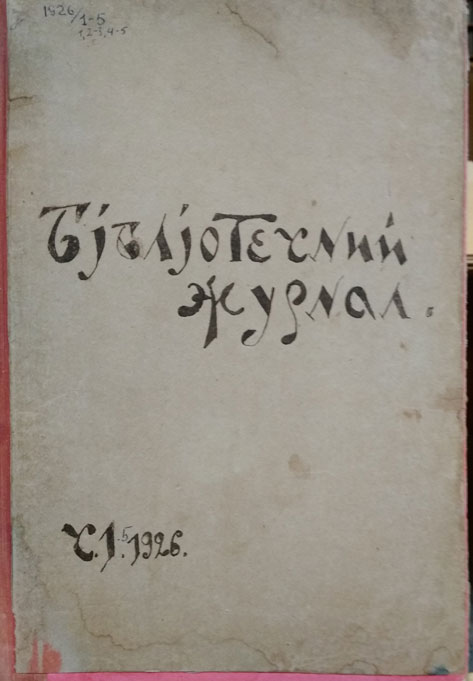 1826/1-5
1,2-3,4-5
Бібліотечний
журнал.
Ч.1-5.1926.